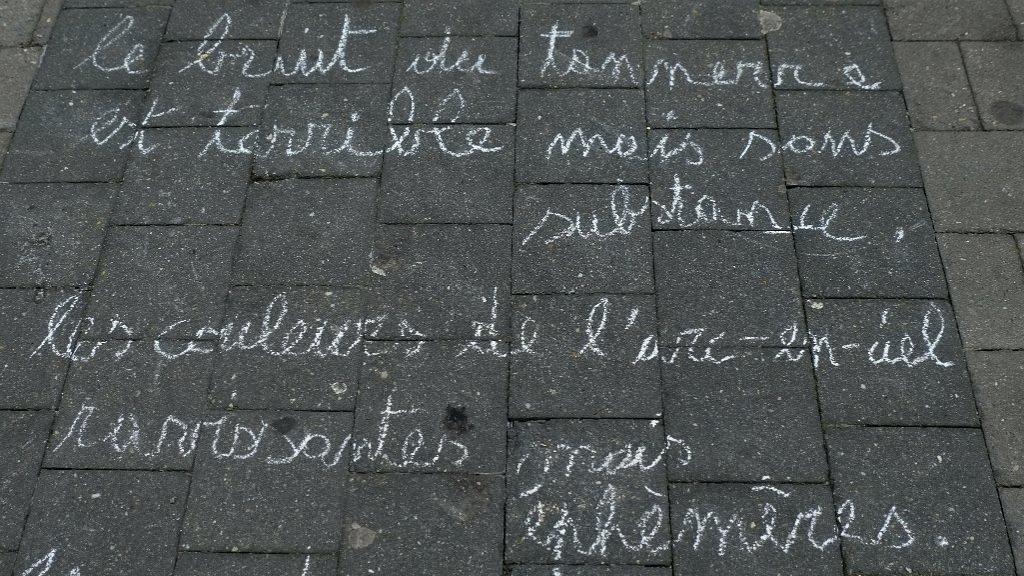 le bruit du tonnerre
est terrible mais sans
substance.
les couleurs de l'arc-en-ciel
ravissantes mais
éphémères.